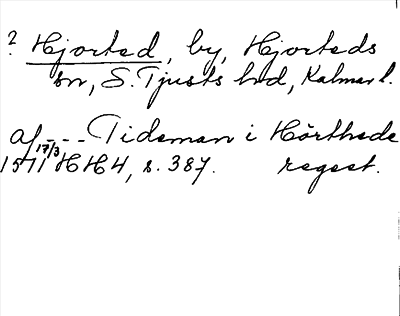 ? Hjorted, by, Hjorteds
sn, S. Tjusts hd, Kalmar l.
af - - - Tideman i Hörthede
17/3 1571 HH 4, s. 387. regest.